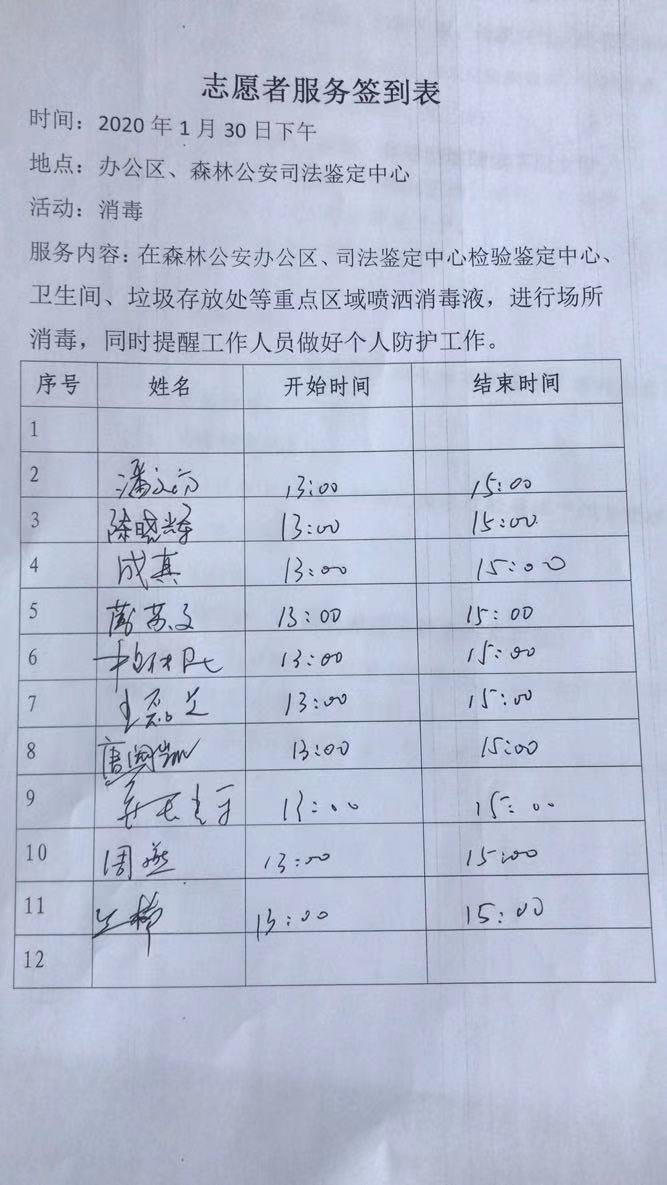 志愿者服务签到表
时间：2020 年 1 月 30 日下午
地点：办公区、森林公安司法鉴定中心
活动：消毒
服务内容：在森林公安办公区、司法鉴定中心检验鉴定中心、
卫生间、垃圾存放处等重点区域喷洒消毒液，进行场所
消毒，同时提醒工作人员做好个人防护工作。
序号 姓名 开始时间 结束时间
1
2 13:00 15:00
3 陈晓辉 13:00 15:00
4 成真 13:00 15:00
5 13:00 15:00
6 13:00 15:00
7 13:00 15:00
8 唐国凯 13:00 15:00
9 13:00 15:00
10 周燕 13:00 15:00
11 13:00 15:00
12